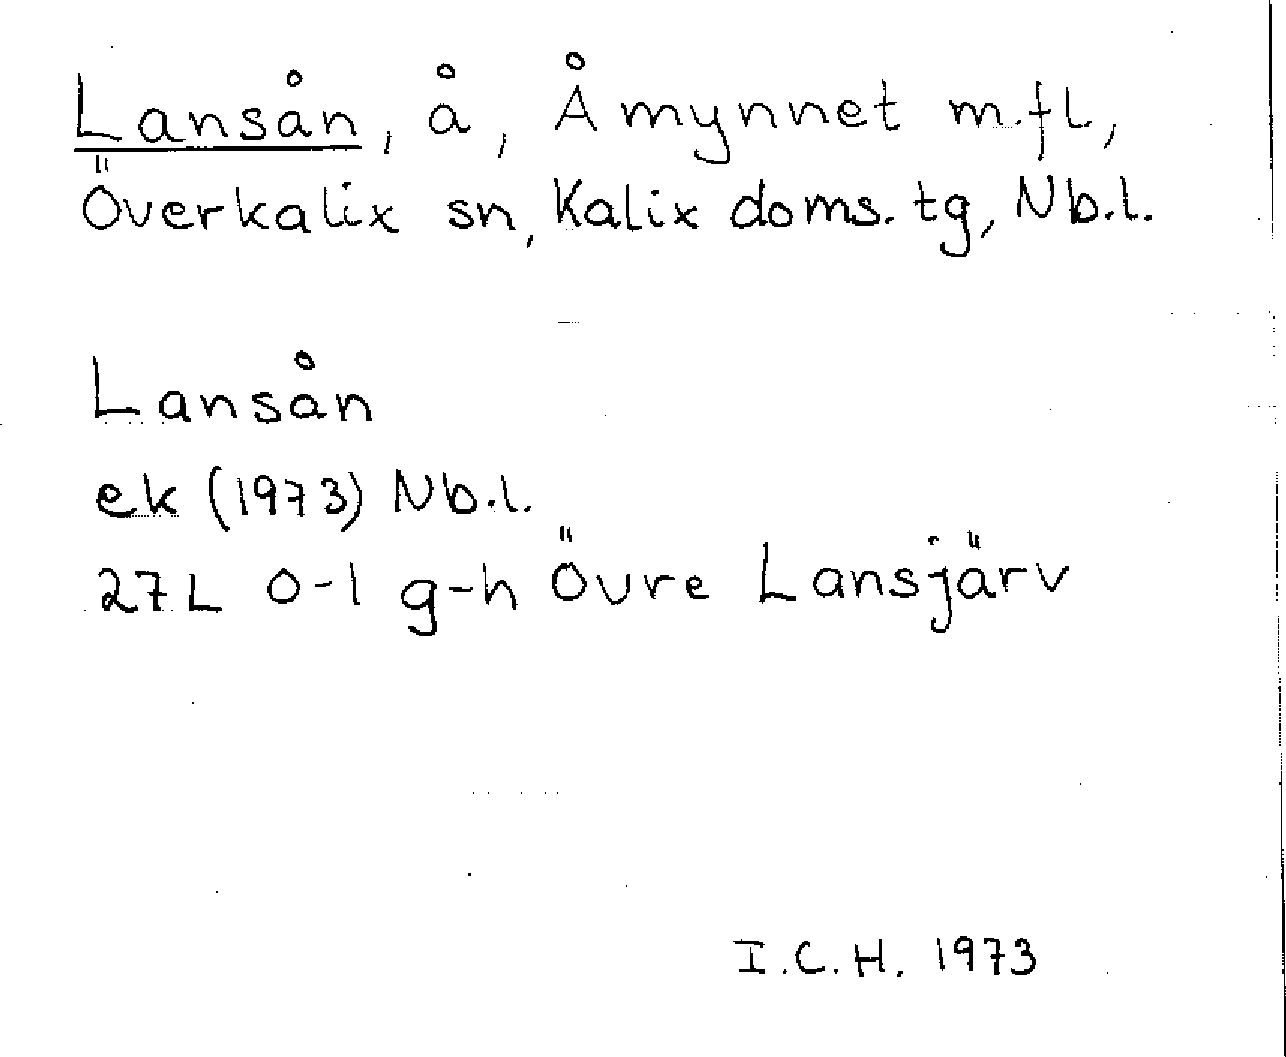 Lansån, å, Åmynnet m.fl,
Överkalix sn, Kalix doms.tg, Nb.l.
Lansån
ek (1973) Nb.l.
27 L 0-1 g-h Övre Lansjärv
I.C.H. 1973